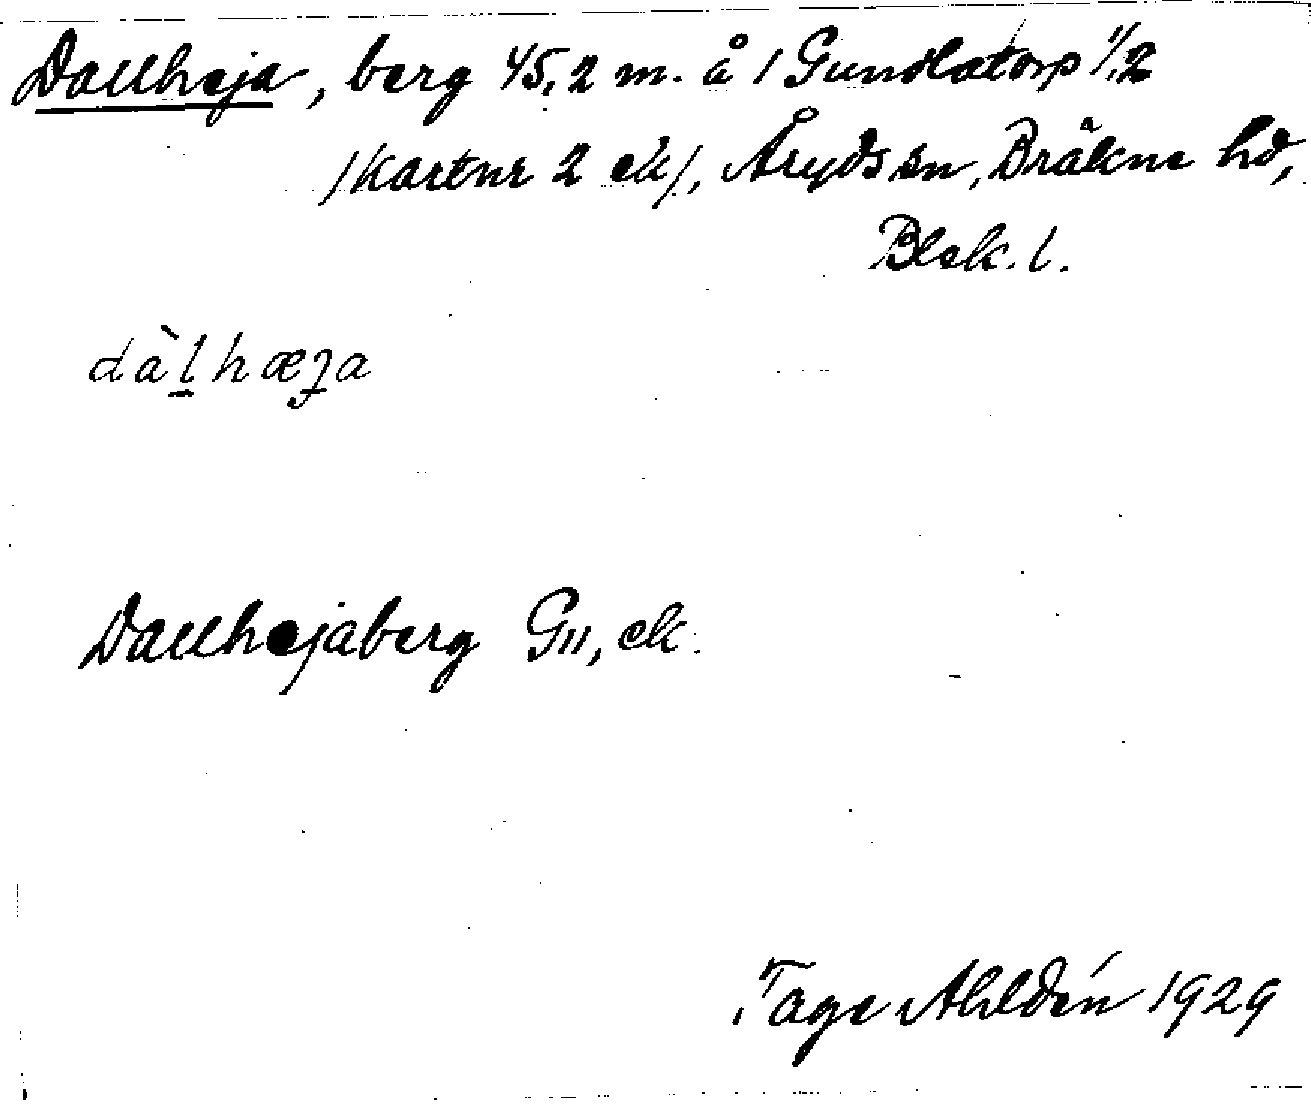 Dallheja, berg 45,2 m. å 1 Gundlatorp 1/1,2
/kartnr 2 ek/, Åryds sn, Bräkne hd,
Blek. l.
dàlhæja
Dallhejaberg G11, ek.
Tage Ahldén 1929